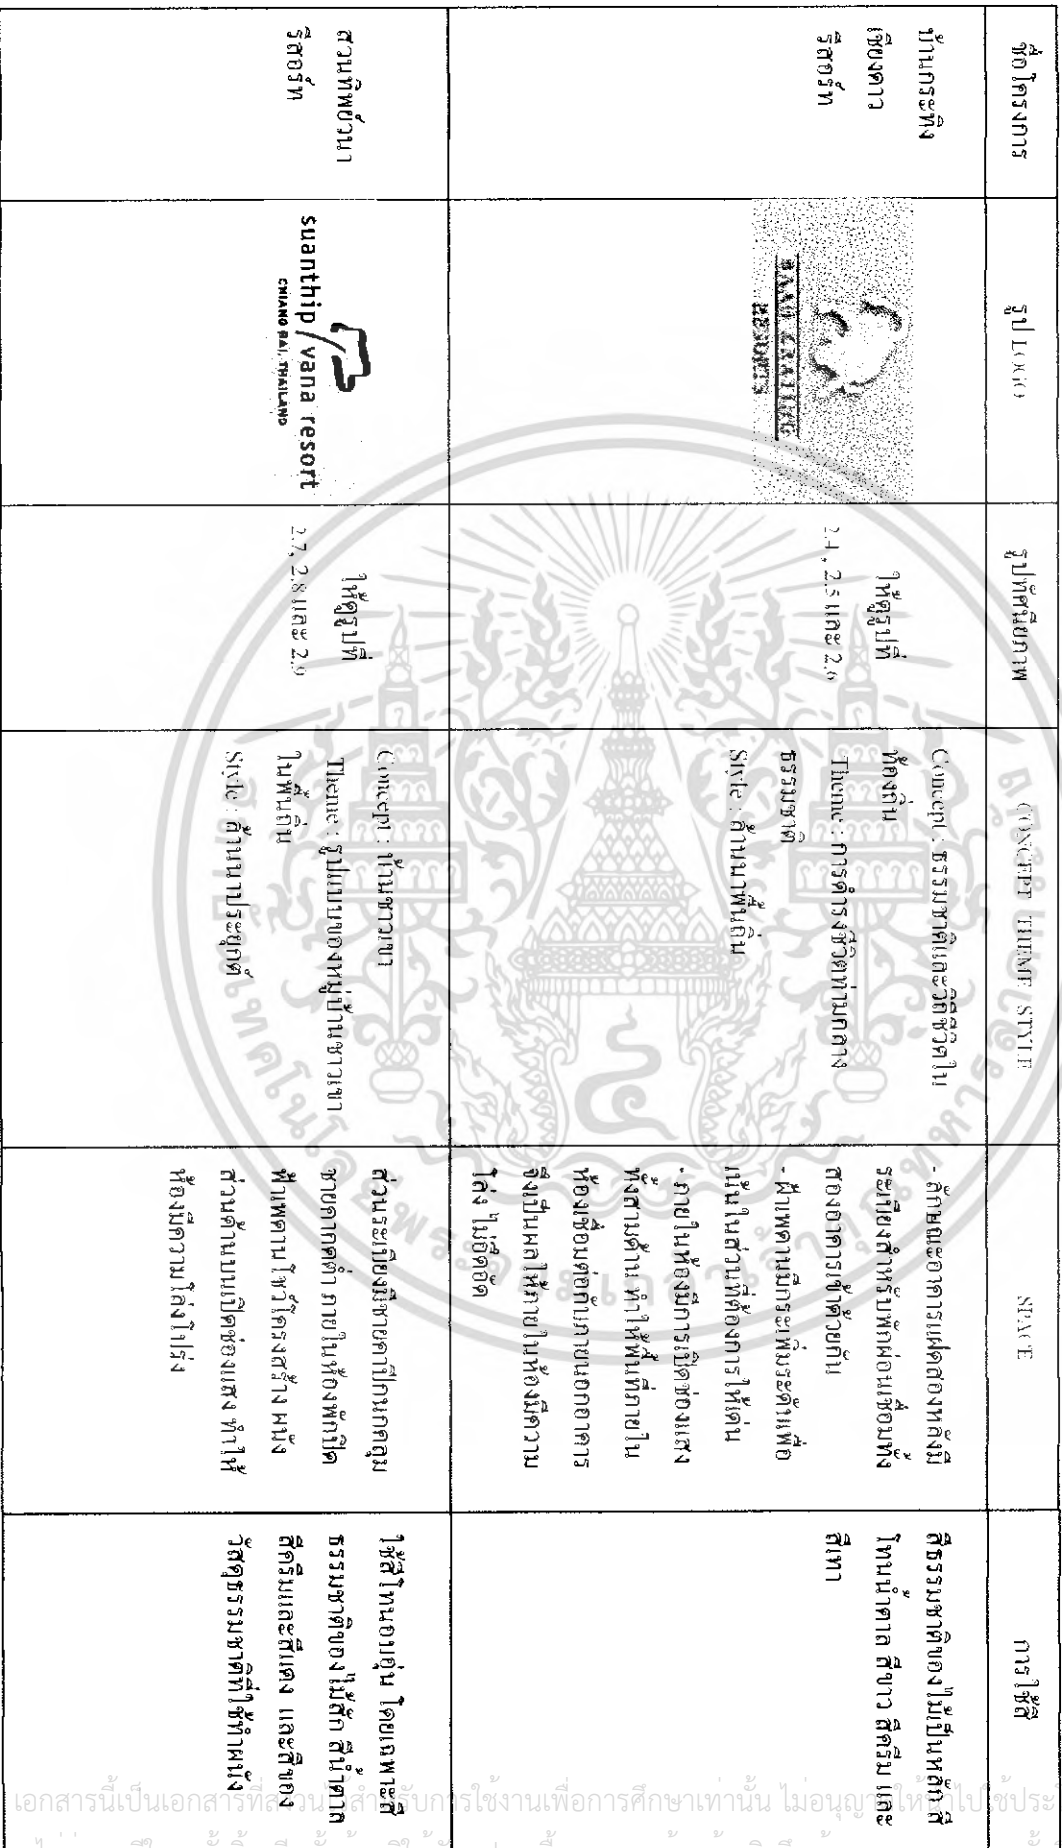 ชื่อโครงการ
รูป LOGO
รูปทัศนียภาพ
CONCEPT THEME STYLE
SPACE
การใช้สี
บ้านกระทิง
เชียงดาว
รีสอร์ท
BAAN KRATING
ให้ดูรูปที่
2.4, 2.5 และ 2.6
Concept : ธรรมชาติและวิถีชีวิตใน
ท้องถิ่น
Theme : การดำรงชีวิตท่ามกลาง
ธรรมชาติ
Style : ล้านนาพื้นถิ่น
- ลักษณะอาคารแฝดสองหลังมี
ระเบียงสำหรับพักผ่อนเชื่อมทั้ง
สองอาคารเข้าด้วยกัน
- ฝ้าเพดานมีกระเพิ่มระดับเพื่อ
เน้นในส่วนที่ต้องการให้เด่น
- ภายในห้องมีการเปิดช่องแสง
ทั้งสามด้าน ทำให้พื้นที่ภายใน
ห้องเชื่อมต่อกับภายนอกอาคาร
จึงเป็นผลให้ภายในห้องมีความ
โล่ง ไม่อึดอัด
สีธรรมชาติของไม้เป็นหลัก สี
โทนน้ำตาล สีขาว สีครีม และ
สีเทา
สวนทิพย์วนา
รีสอร์ท
suanthip vana resort
CHIANG RAI, THAILAND
ให้ดูรูปที่
2.7, 2.8 และ 2.9
Concept : บ้านชาวเขา
Theme : รูปแบบของหมู่บ้านชาวเขา
ในพื้นถิ่น
Style : ล้านนาประยุกต์
ส่วนระเบียงมีชายคาปีกนกคลุม
ชายคาตกต่ำ ภายในห้องพักเปิด
ฝ้าเพดานโชว์โครงสร้าง ผนัง
ส่วนด้านบนเปิดช่องแสง ทำให้
ห้องมีความโล่งโปร่ง
ใช้สีโทนอบอุ่น โดยเฉพาะสี
ธรรมชาติของไม้สัก สีน้ำตาล
สีครีมและสีแดง และสีของ
วัสดุธรรมชาติที่ใช้ทำผนัง
เอกสารนี้เป็นเอกสารที่สงวนไว้สำหรับการใช้งานเพื่อการศึกษาเท่านั้น ไม่อนุญาตให้นำไปใช้ประ